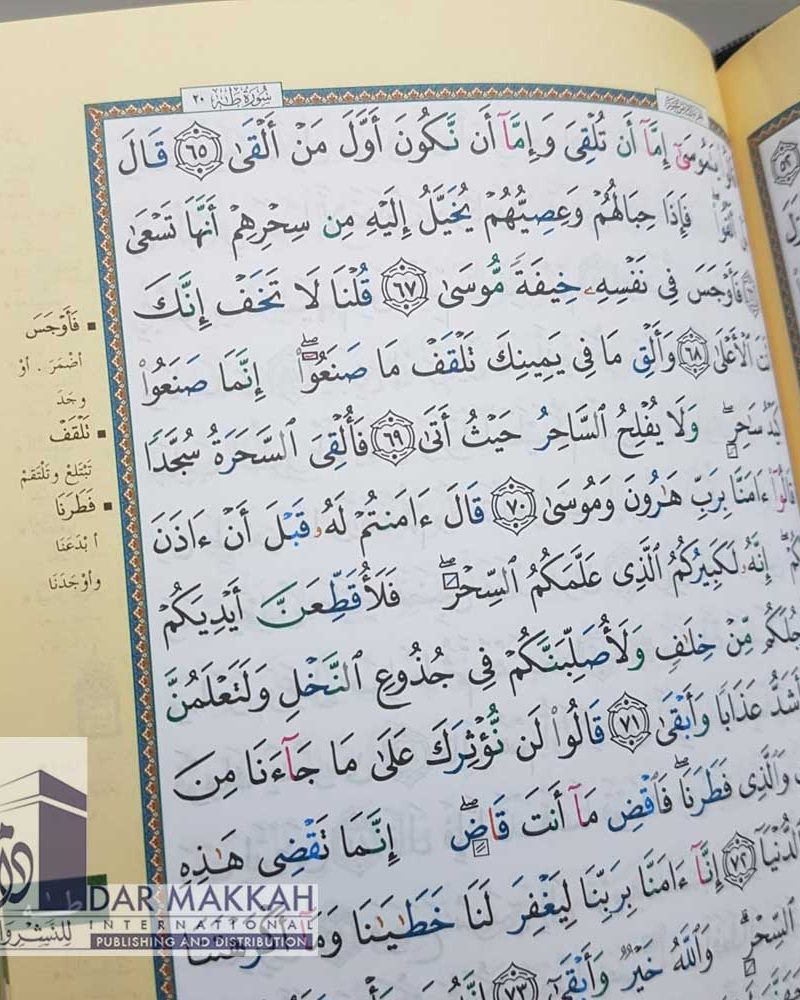 سُورَةُ طه ٢٠
يَـٰمُوسَىٰٓ إِمَّآ أَن تُلْقِىَ وَإِمَّآ أَن نَّكُونَ أَوَّلَ مَنْ أَلْقَىٰ ٦٥ قَالَ
فَإِذَا حِبَالُهُمْ وَعِصِيُّهُمْ يُخَيَّلُ إِلَيْهِ مِن سِحْرِهِمْ أَنَّهَا تَسْعَىٰ
فَأَوْجَسَ فِى نَفْسِهِۦ خِيفَةً مُّوسَىٰ ٦٧ قُلْنَا لَا تَخَفْ إِنَّكَ
ٱلْأَعْلَىٰ ٦٨ وَأَلْقِ مَا فِى يَمِينِكَ تَلْقَفْ مَا صَنَعُوٓا۟ ۖ إِنَّمَا صَنَعُوا۟
كَيْدُ سَـٰحِرٍ ۖ وَلَا يُفْلِحُ ٱلسَّاحِرُ حَيْثُ أَتَىٰ ٦٩ فَأُلْقِىَ ٱلسَّحَرَةُ سُجَّدًا
قَالُوٓا۟ ءَامَنَّا بِرَبِّ هَـٰرُونَ وَمُوسَىٰ ٧٠ قَالَ ءَامَنتُمْ لَهُۥ قَبْلَ أَنْ ءَاذَنَ
إِنَّهُۥ لَكَبِيرُكُمُ ٱلَّذِى عَلَّمَكُمُ ٱلسِّحْرَ ۖ فَلَأُقَطِّعَنَّ أَيْدِيَكُمْ
مِّنْ خِلَـٰفٍ وَلَأُصَلِّبَنَّكُمْ فِى جُذُوعِ ٱلنَّخْلِ وَلَتَعْلَمُنَّ
أَشَدُّ عَذَابًا وَأَبْقَىٰ ٧١ قَالُوا۟ لَن نُّؤْثِرَكَ عَلَىٰ مَا جَآءَنَا مِنَ
وَٱلَّذِى فَطَرَنَا ۖ فَٱقْضِ مَآ أَنتَ قَاضٍ ۖ إِنَّمَا تَقْضِى هَـٰذِهِ
ٱلدُّنْيَآ ٧٢ إِنَّآ ءَامَنَّا بِرَبِّنَا لِيَغْفِرَ لَنَا خَطَـٰيَـٰنَا وَمَآ أَكْرَهْتَنَا
ٱلسِّحْرِ ۗ وَٱللَّهُ خَيْرٌ وَأَبْقَىٰٓ ٧٣ إِنَّهُۥ
▪ فَأَوْجَسَ
أضْمَرَ . أوْ
وجَدَ
▪ تَلْقَفْ
تَبْتَلِعْ وتَلْتَقِمْ
▪ فَطَرَنَا
أبْدَعَنَا
وأوْجَدَنَا
DAR MAKKAH
INTERNATIONAL
PUBLISHING AND DISTRIBUTION